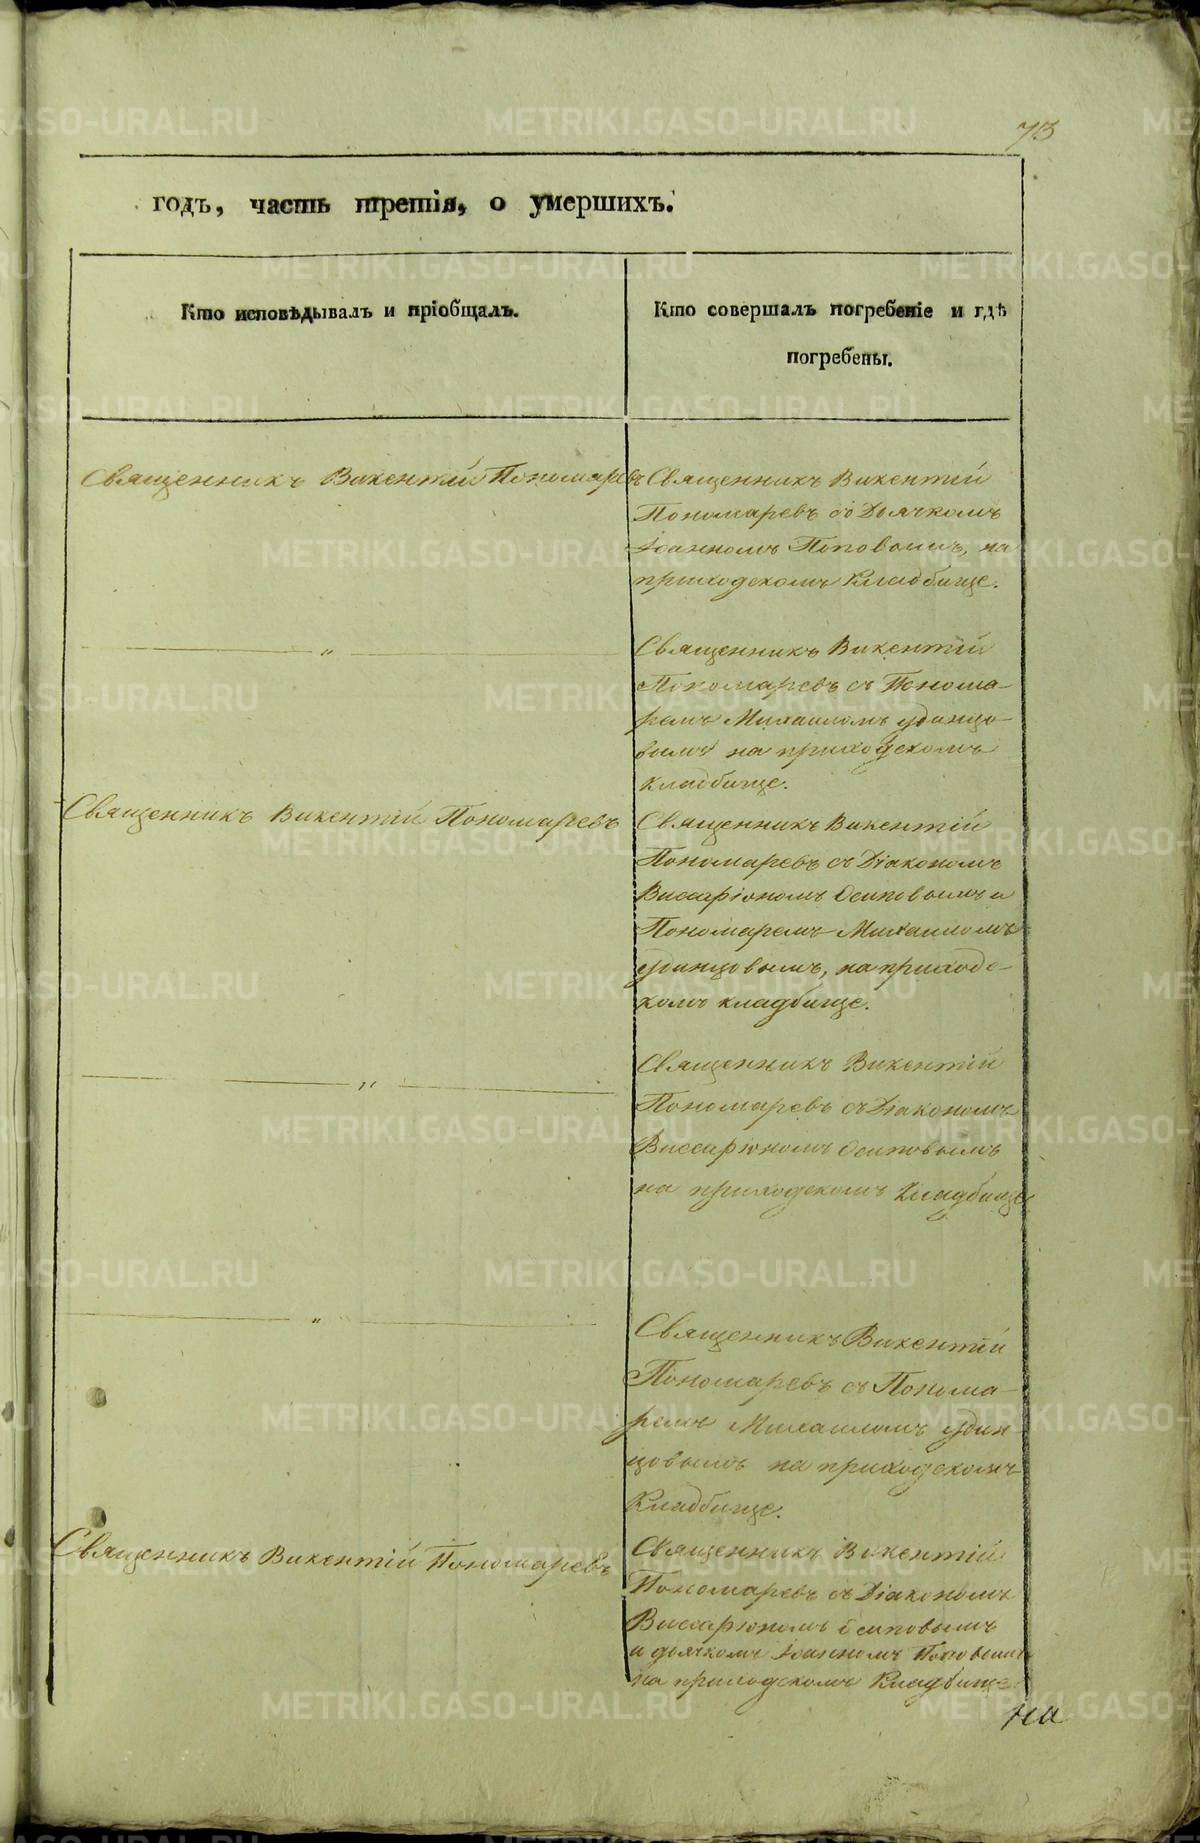 73
годъ, часть третія, о умершихъ.
Кто исповѣдывалъ и пріобщалъ.
Кто совершалъ погребеніе и гдѣ
погребены.
Священникъ Викентій Пономаревъ
Священникъ Викентій
Пономаревъ съ Дьячкомъ
Іоанномъ Поповымъ, на
приходскомъ кладбище.
— „ —
Священникъ Викентій
Пономаревъ съ Понома-
ремъ Михаиломъ Удинцо-
вымъ на приходскомъ
кладбище.
Священникъ Викентій Пономаревъ
Священникъ Викентій
Пономаревъ съ Діакономъ
Виссаріономъ Осиповымъ и
Пономаремъ Михаиломъ
Удинцовымъ, на приходс-
комъ кладбище.
— „ —
Священникъ Викентій
Пономаревъ съ Діакономъ
Виссаріономъ Осиповымъ
на приходскомъ Кладбище
— „ —
Священникъ Викентій
Пономаревъ съ Понома-
ремъ Михаиломъ Удин-
цовымъ на приходскомъ
Кладбище.
Священникъ Викентій Пономаревъ
Священникъ Викентій
Пономаревъ съ Діакономъ
Виссаріономъ Осиповымъ
и дьячкомъ Іоанномъ Поповымъ
на приходскомъ Кладбище
на
METRIKI.GASO-URAL.RU